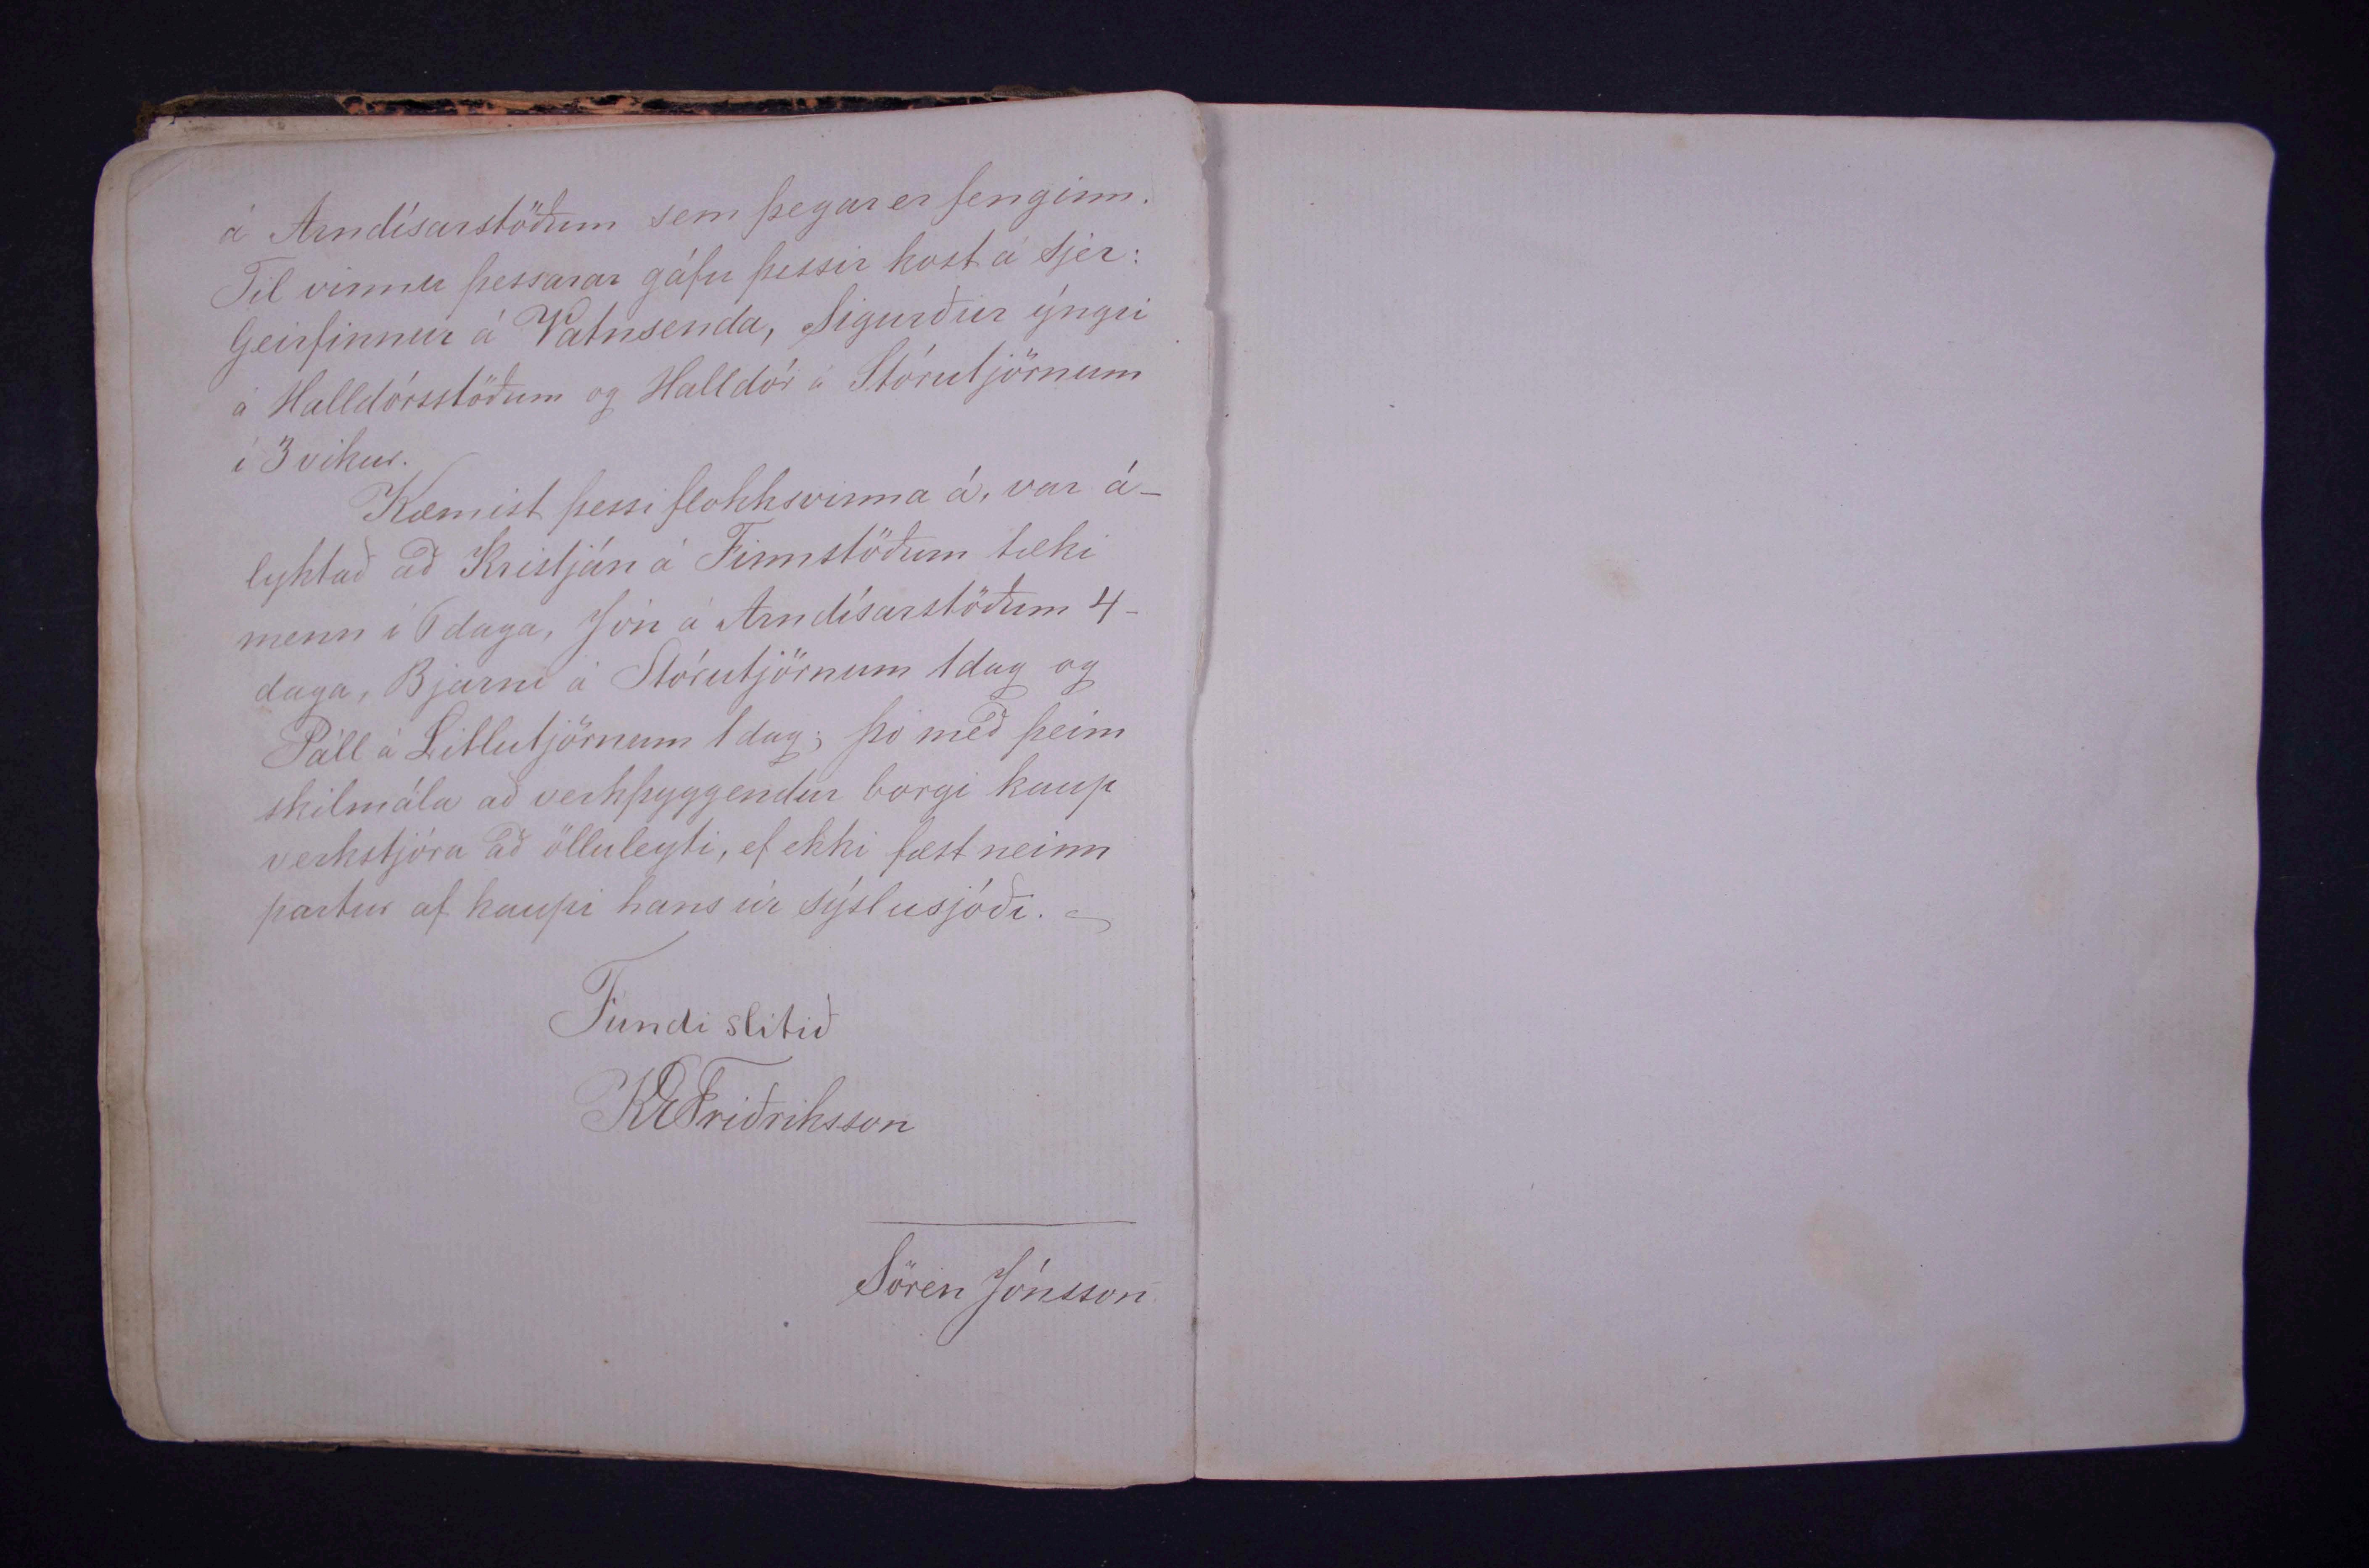 á Arndísarstöðum sem þegar er fenginn.
Til vinnu þessarar gáfu þessir kost á sjer:
Geirfinnur á Vatnsenda, Sigurður ýngri
á Halldórsstöðum og Halldór á Stórutjörnum
í 3 vikur.
Kæmist þessi flokksvinna á, var á-
lyktað að Kristján á Finnstöðum tæki
menn í 6 daga, Jón á Arndísarstöðum 4-
daga, Bjarni á Stórutjörnum 1 dag og
Páll á Litlutjörnum 1 dag; þó með þeim
skilmála að verkþyggendur borgi kaup
verkstjóra aðölluleyti, ef ekki fæst neinn
partur af kaupi hans úr sýslusjóði.
Fundi slitið
KEFriðriksson
Sören Jónsson